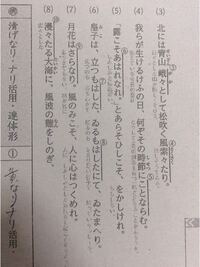 (3) 北には青山峨々として松吹く風索々たり。
(4) 我らが生けるけふの日、何ぞその時節にことならむ。
(5) 「露こそあはれなれ」とあらそひしこそ、をかしけれ。
(6) 皇子は、立つもはした、ゐるもはしたにて、ゐたまへり。
(7) 月花はさらなり、風のみこそ、人に心はつくめれ。
(8) 漫々たる大海に、風波の難をしのぎ、
例 清げなり・ナリ活用・連体形 ①
なり・ナリ活用・